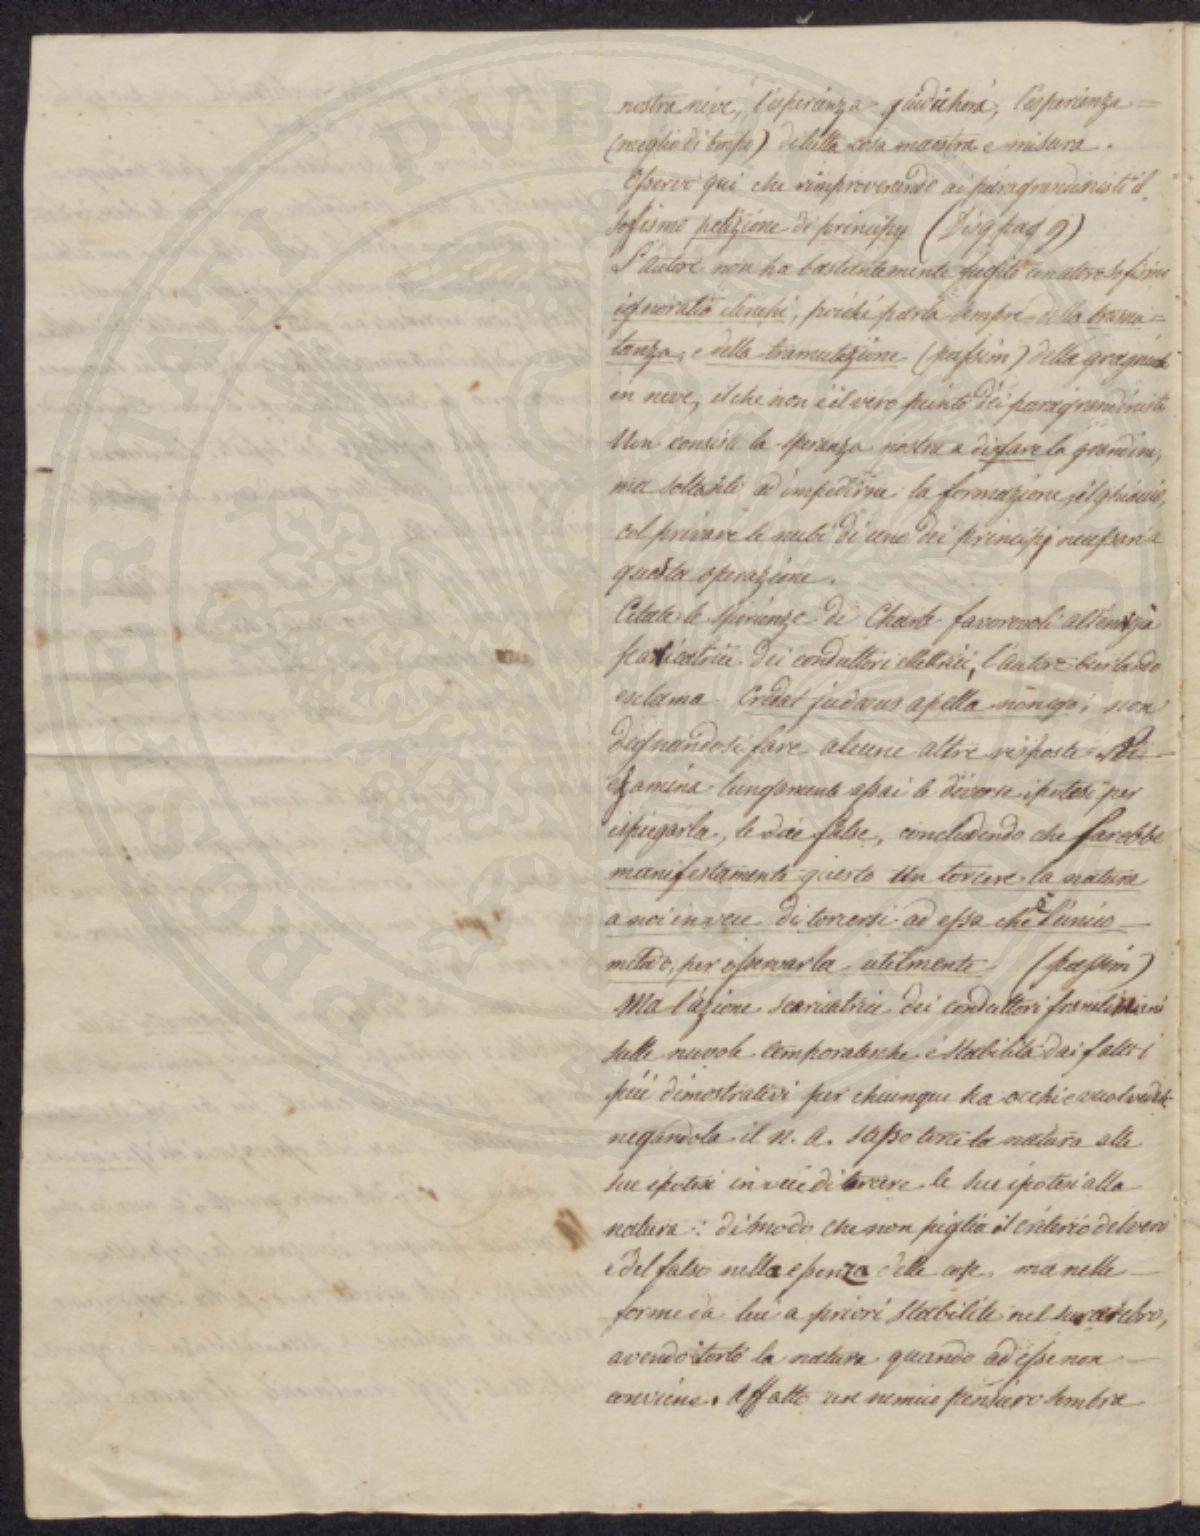 nostra neve, l'esperienza giudicherà, l'esperienza =
(meglio di tempi) di tutta cosa maestra e misura.
Osservo qui che rimproverando ai paragrandinisti il
sofismo petizione di principj (Disq pag 9)
L'autore non ha bastantemente fugito un altro sofismo
ignoratio elenchi, poiché parla sempre della trama=
tanza, e della tramutazione (passim) della gragnuola
in neve, il che non è il vero punto dei paragrandinisti
Non consiste la speranza nostra a disfare la grandine,
ma soltanto ad impedirne la formazione, il ghiaccio,
col privare le nubi di uno dei principj necessari a
questa operazione.
Citate le sperienze di Charles favorevoli all'energia
scaricatrice dei conduttori elettrici, l'autore burlando
esclama Credat judaeus apella non ego, non
degnandosi fare alcune altre risposte. Ne
esamina lungamente assai le diverse ipotesi per
ispiegarla, le dice false, concludendo che sarebbe
manifestamente questo un torcere la natura
a noi invece di torcersi ad essa che è l'unico
metodo, per osservarla utilmente (passim)
Ma l'azione scaricatrice dei conduttori frankliniani
sulle nuvole temporalesche è stabilita dai fatti i
più dimostrativi per chiunque ha occhi e vuol vedere
negandola il n. a. stesso torce la natura alle
sue ipotesi invece di torcere le sue ipotesi alla
natura: di modo che non piglia il criterio del vero
e del falso nella essenza delle cose, ma nelle
forme da lui a priori stabilite nel suo cerebro,
avendo torto la natura quando ad esse non
conviene. Affatto un nemico pensiero sembra